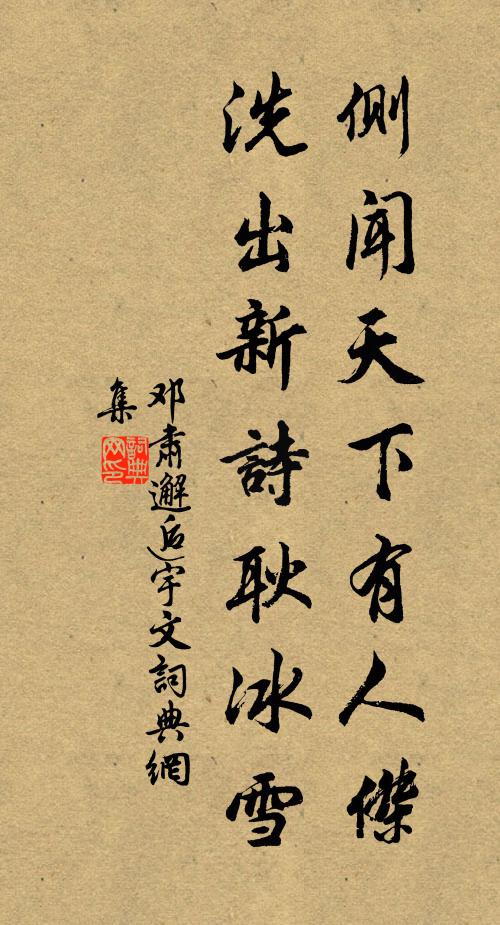 侧闻天下有人傑
洗出新詩耿冰雪
邓肃邂逅宇文詞典網
集
詞典网印